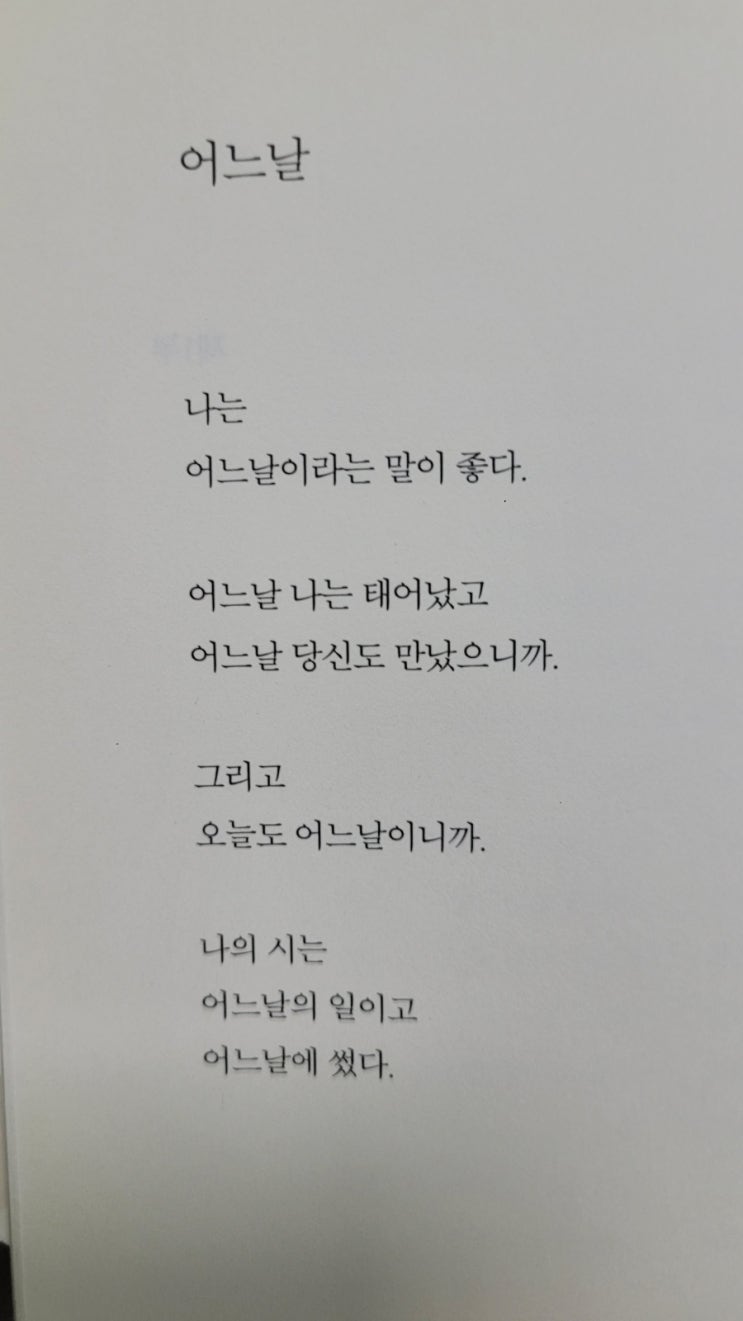 어느날
나는
어느날이라는 말이 좋다.
어느날 나는 태어났고
어느날 당신도 만났으니까.
그리고
오늘도 어느날이니까.
나의 시는
어느날의 일이고
어느날에 썼다.